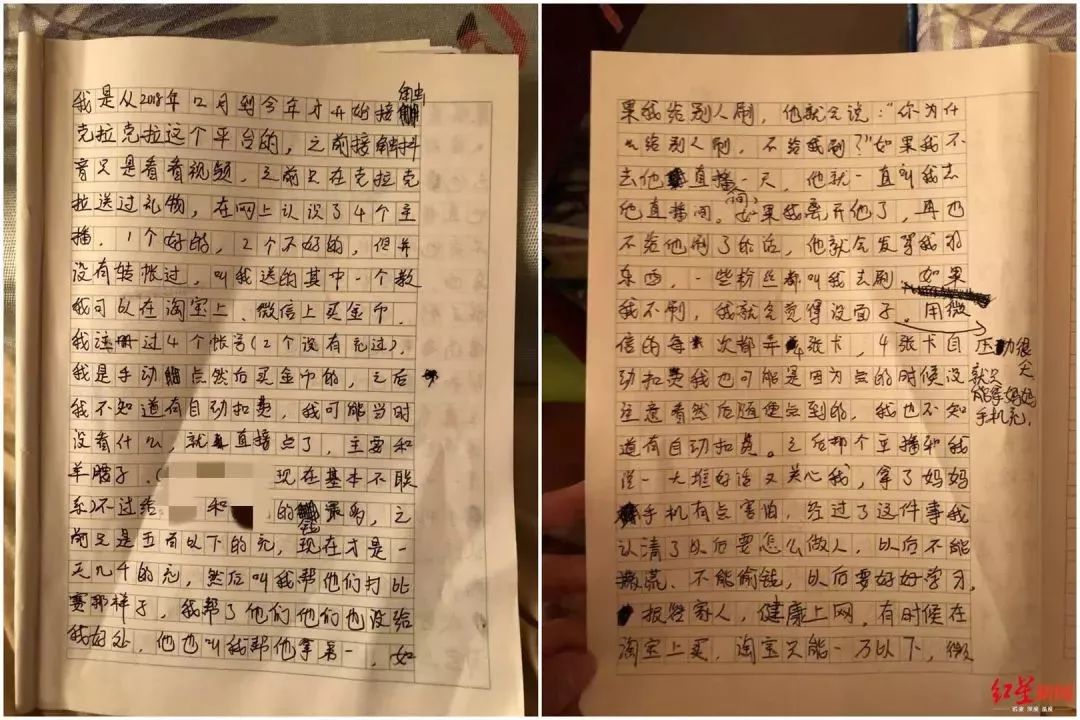 我是从2018年12月到今年才开始接触
克拉克拉这个平台的,之前接触抖
音只是看看视频,之前只在克拉克
拉送过礼物,在网上认识了4个主
播,1个好的,2个不好的,但并
没有转帐过,叫我送的其中一个教
我可以在淘宝上、微信上买金币,
我注册过4个帐号(2个没有充过),
我是手动点然后买金币的,之后
我不知道有自动扣费,我可能当时
没看什么,就直播点了,主要和
羊腰子,( 现在基本不联
系)不过给 和 的钱最多,之
前只是五百以下的充,现在才是一
天几千的充,然后叫我帮他们打比
赛那样子,我帮了他们他们也没给
我好处,他也叫我帮他拿第一,如
果我给别人刷,他就会说:“你为什
么给别人刷,不给我刷?”如果我不
去他直播一天,他就一直叫我去
他直播间,如果我离开他了,再也
不给他刷了的话,他就会发骂我的
东西,一些粉丝都叫我去刷,如果
我不刷,我就会觉得没面子。用微
信的每次都弄4张卡,4张卡自
压力很大
就只
能拿妈妈
手机充,
动扣费我也可能是因为点的时候没
注意看然后随便点到的,我也不知
道有自动扣费。之后那个主播和我
说一大堆好话又关心我,拿了妈妈
手机有点害怕,经过了这件事我
认清了以后要怎么做人,以后不能
撒谎、不能偷钱,以后要好好学习,
报答家人,健康上网,有时候在
淘宝上买,淘宝只能一万以下,微
红星新闻